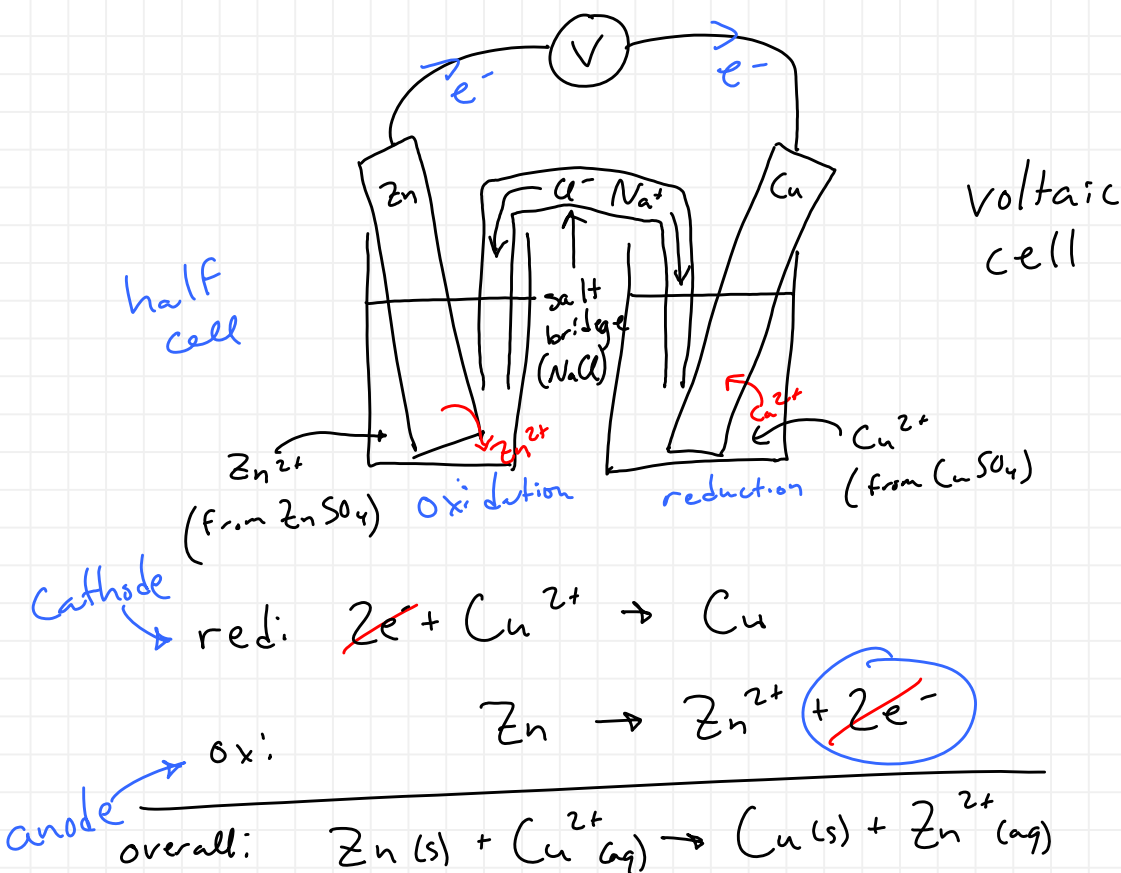 V
e⁻
e⁻
Zn
Cl⁻ Na⁺
Cu
voltaic
cell
half
cell
salt
bridege
(NaCl)
Zn²⁺
Cu²⁺
Zn²⁺
(from ZnSO₄)
Cu²⁺
(from CuSO₄)
oxidution
reduction
Cathode
red: 2e⁻ + Cu²⁺ → Cu
Zn → Zn²⁺ + 2e⁻
oxi
anode
overall: Zn (s) + Cu²⁺ (aq) → Cu (s) + Zn²⁺ (aq)